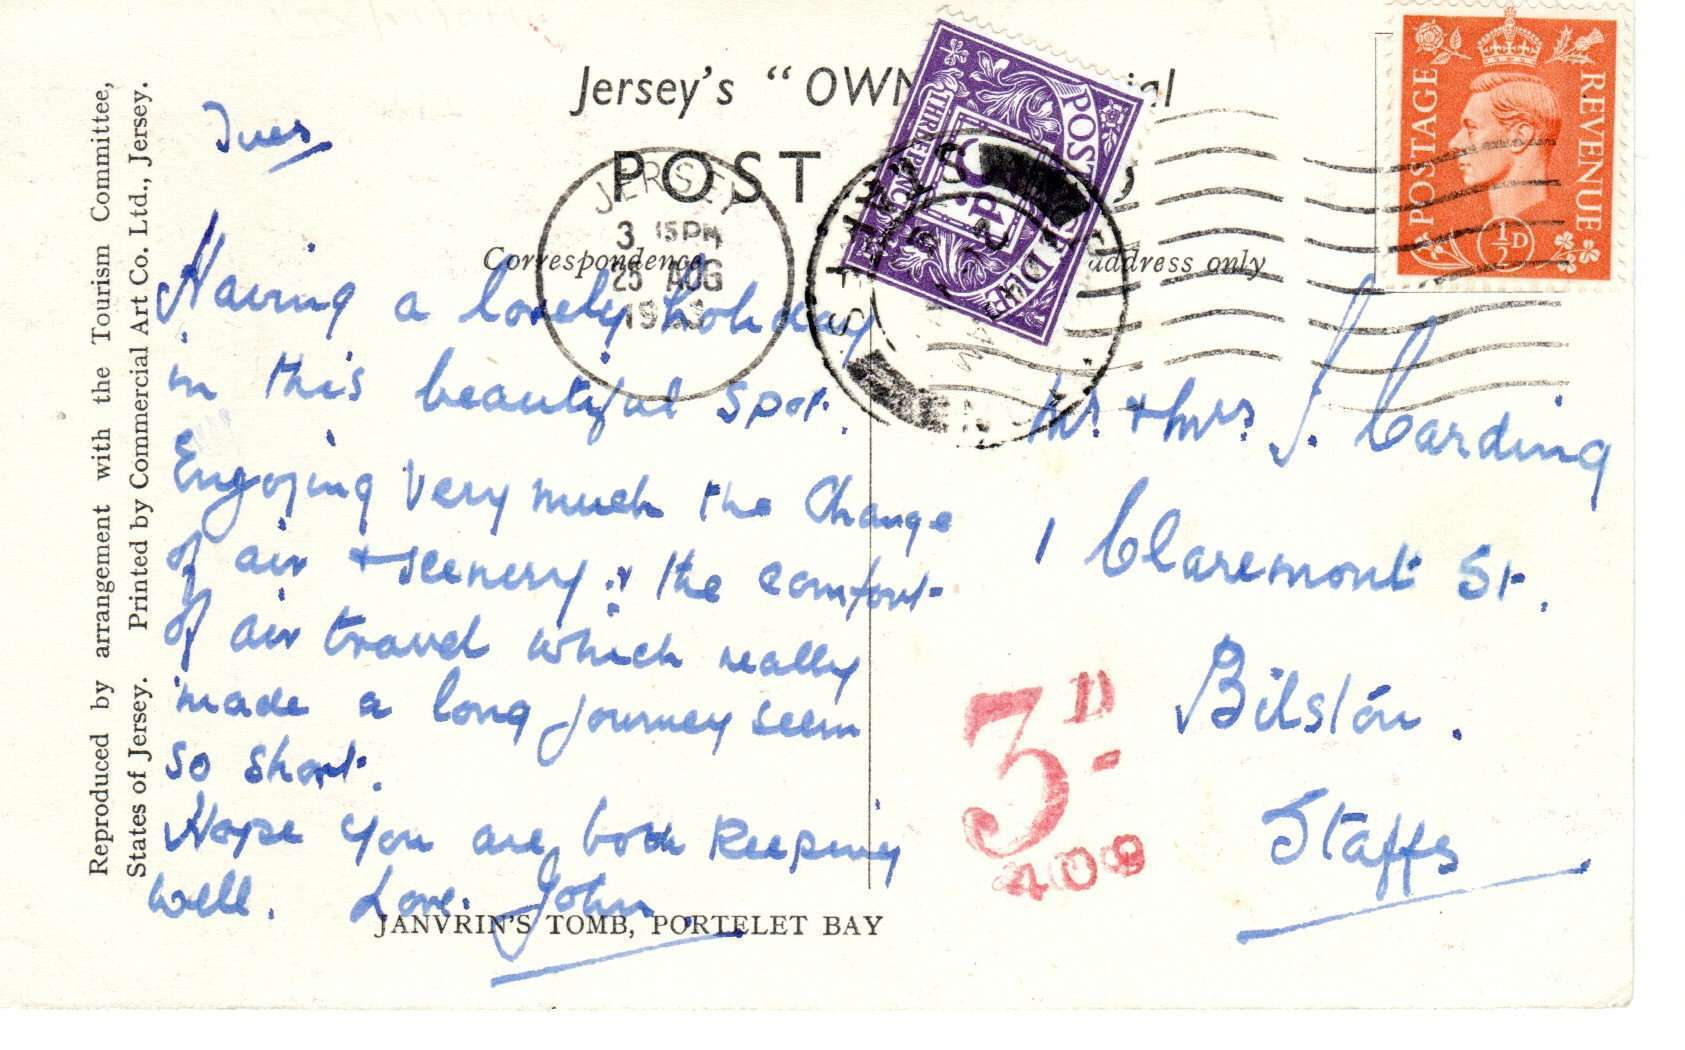 Reproduced by arrangement with the Tourism Committee,
States of Jersey. Printed by Commercial Art Co. Ltd., Jersey.
Jersey's "OWN
POST
Correspondence
address only
JERSEY
3 15PM
25 AUG
19
POSTAGE DUE
THREE PENCE
3d.
POSTAGE
REVENUE
½D
Tues
Having a lovely holiday
in this beautiful spot.
Engoying very much the Change
of air + scenery & the comfort
of air travel which really
made a long journey seem
so short.
Hope you are both keeping
well. Love. John.
Mr. & Mrs. J. Carding
1 Claremont St.
Bilston.
Staffs
3D
408
JANVRIN'S TOMB, PORTELET BAY